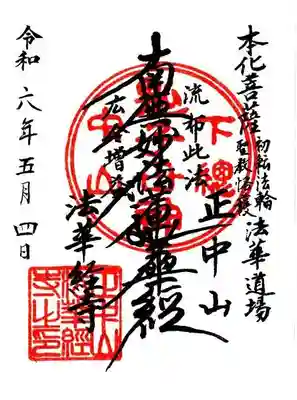 本化菩薩 初転法輪 法華道場
聖教護持
正中山
流布此法
南無妙法蓮華経
広令増益
法華経寺
令和六年五月四日